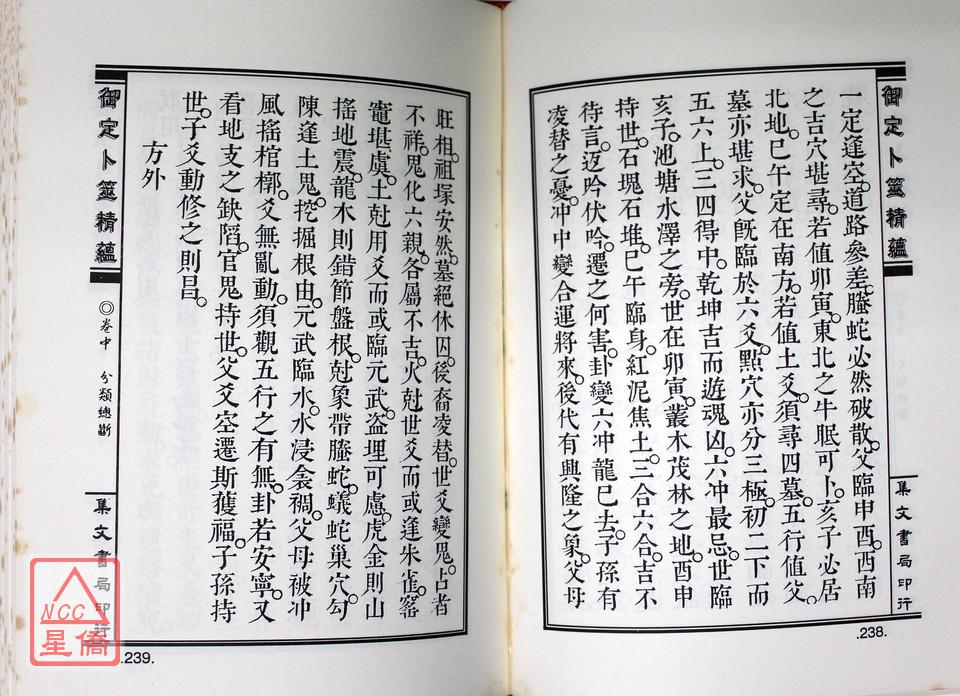 御定卜筮精蘊
集文書局印行
一定逢空。道路參差。螣蛇必然破散。父臨申酉。西南
之吉穴堪尋。若值卯寅。東北之牛眠可卜。亥子必居
北地。巳午定在南方。若值土爻。須尋四墓。五行值父。
墓亦堪求。父旣臨於六爻。點穴亦分三極。初二下而
五六上。三四得中。乾坤吉而遊魂凶。六冲最忌。世臨
亥子。池塘水澤之旁。世在卯寅。叢木茂林之地。酉申
持世。石塊石堆。巳午臨身。紅泥焦土。三合六合。吉不
待言。返吟伏吟。遷之何害。卦變六冲龍已去。子孫有
凌替之憂。冲中變合運將來。後代有興隆之象。父母
.238.
旺相。祖塚安然。墓絕休囚。後裔凌替。世爻變鬼。占者
不祥。鬼化六親。各屬不吉。火尅世爻而或逢朱雀。窰
竈堪虞。土尅用爻而或臨元武。盜埋可慮。虎金則山
搖地震。龍木則錯節盤根。尅象帶螣蛇。蟻蛇巢穴。勾
陳逢土鬼。挖掘根由。元武臨水。水浸衾裯。父母被冲
風搖棺槨。爻無亂動。須觀五行之有無。卦若安寧。又
看地支之缺陷。官鬼持世。父爻空遷斯獲福。子孫持
世。子爻動修之則昌。
方外
御定卜筮精蘊
◎卷中 分類總斷
集文書局印行
.239.
NCC
星僑